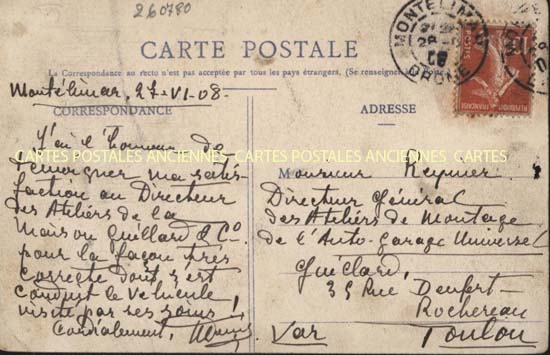 260780
CARTE POSTALE
La Correspondance au recto n'est pas acceptée par tous les pays étrangers. (Se renseigner
MONTELIMAR
DROME
08
REPUBLIQUE FRANÇAISE
POSTES
Montélimar, 27-VI-08-
CORRESPONDANCE
ADRESSE
J'ai l'honneur de
témoigner ma satis-
faction au Directeur
des Ateliers de la
Maison Guillard & Cº
pour la façon très
correcte dont s'est
conduit le véhicule
visité par ses soins,
Cordialement,
Monsieur Reynier
Directeur Général
des Ateliers de Montage
de l'Auto-Garage Universel
Guillard,
35 Rue Denfert-
Rochereau
Var Toulon
CARTES POSTALES ANCIENNES CARTES POSTALES ANCIENNES CARTES